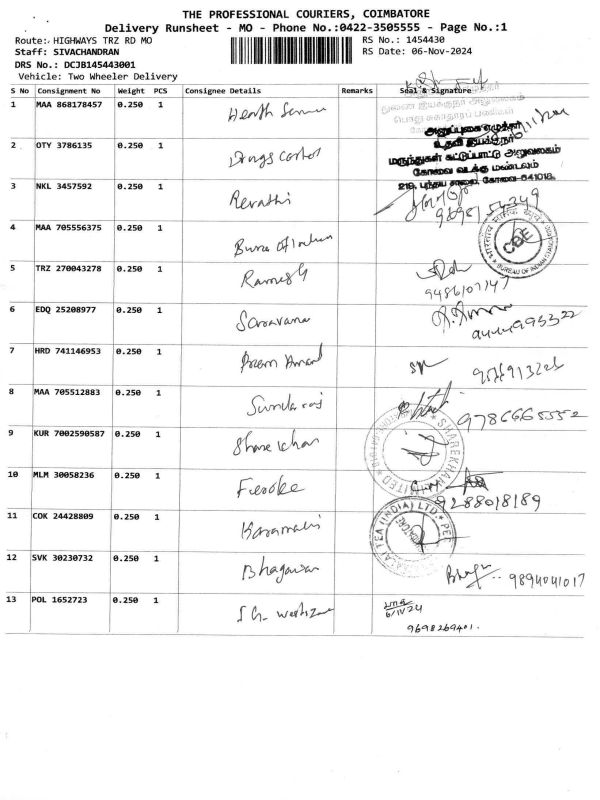 THE PROFESSIONAL COURIERS, COIMBATORE
Delivery Runsheet - MO - Phone No.:0422-3505555 - Page No.:1
Route: HIGHWAYS TRZ RD MO RS No.: 1454430
Staff: SIVACHANDRAN RS Date: 06-Nov-2024
DRS No.: DCJB145443001
Vehicle: Two Wheeler Delivery
S No Consignment No Weight PCS Consignee Details Remarks Seal & Signature
1 MAA 868178457 0.250 1 Health
துணை இயக்குநர் அலுவலகம்
பொது சுகாதாரப் பணிகள்
அனுப்புகை எழுத்தர்
உதவி இயக்குநர்
2 OTY 3786135 0.250 1 Drugs Control
மருந்துகள் கட்டுப்பாட்டு அலுவலகம்
கோவை வடக்கு மண்டலம்
219, பந்தய சாலை, கோவை-641018.
3 NKL 3457592 0.250 1 Revathi
4 MAA 705556375 0.250 1 Bureo of Indian
CBE
BUREAU OF INDIAN STANDARDS
5 TRZ 270043278 0.250 1 Ramesh
6 EDQ 25208977 0.250 1 Saravana
7 HRD 741146953 0.250 1 Prem Anand
8 MAA 705512883 0.250 1 Sundaraj
9786665552
9 KUR 7002590587 0.250 1 Share khan
SHAREKHAN LIMITED
10 MLM 30058236 0.250 1 Feroke
9288018189
11 COK 24428809 0.250 1 Karamalai
TEA (INDIA) LTD.
12 SVK 30230732 0.250 1 Bhagavan
9894041017
13 POL 1652723 0.250 1
9698269401.